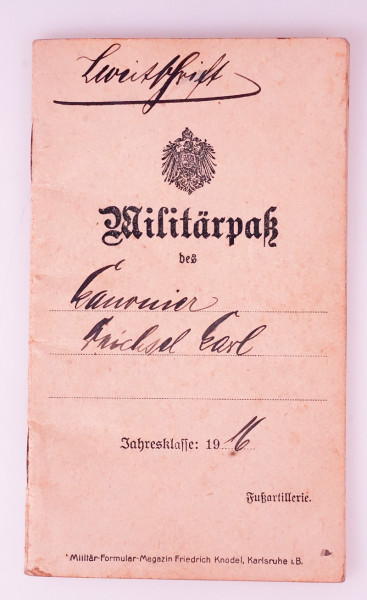 Zweitschrift
Militärpaß
des
Kanonier
Karl
Jahresklasse: 1916
Fußartillerie.
Militär-Formular-Magazin Friedrich Knodel, Karlsruhe i.B.